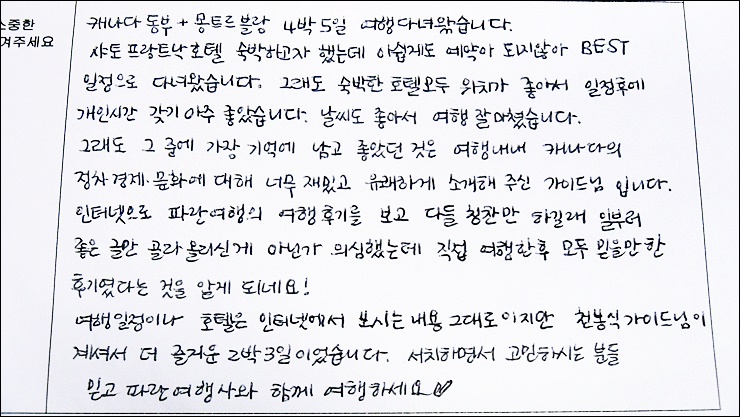 소중한
겨주세요
캐나다 동부 + 몽트르블랑 4박 5일 여행다녀왔습니다.
샤또 프랑트낙호텔 숙박하고자 했는데 아쉽게도 예약이 되지않아 BEST
일정으로 다녀왔습니다. 그래도 숙박한 호텔모두 위치가 좋아서 일정후에
개인시간 갖기 아주 좋았습니다. 날씨도 좋아서 여행 잘마쳤습니다.
그래도 그 중에 가장 기억에 남고 좋았던 것은 여행내내 캐나다의
정차경제·문화에 대해 너무 재밌고 유쾌하게 소개해 주신 가이드님 입니다.
인터넷으로 파란여행의 여행후기를 보고 다들 칭찬만 하길래 일부러
좋은 글만 골라 올리신게 아닌가 의심했는데 직접 여행한후 모두 믿을만한
후기였다는 것을 알게 되네요!
여행일정이나 호텔은 인터넷에서 보시는 내용 그대로이지만 천봉식 가이드님이
계셔서 더 즐거운 2박3일이었습니다. 서치하면서 고민하시는 분들
믿고 파란여행사와 함께 여행하세요♡